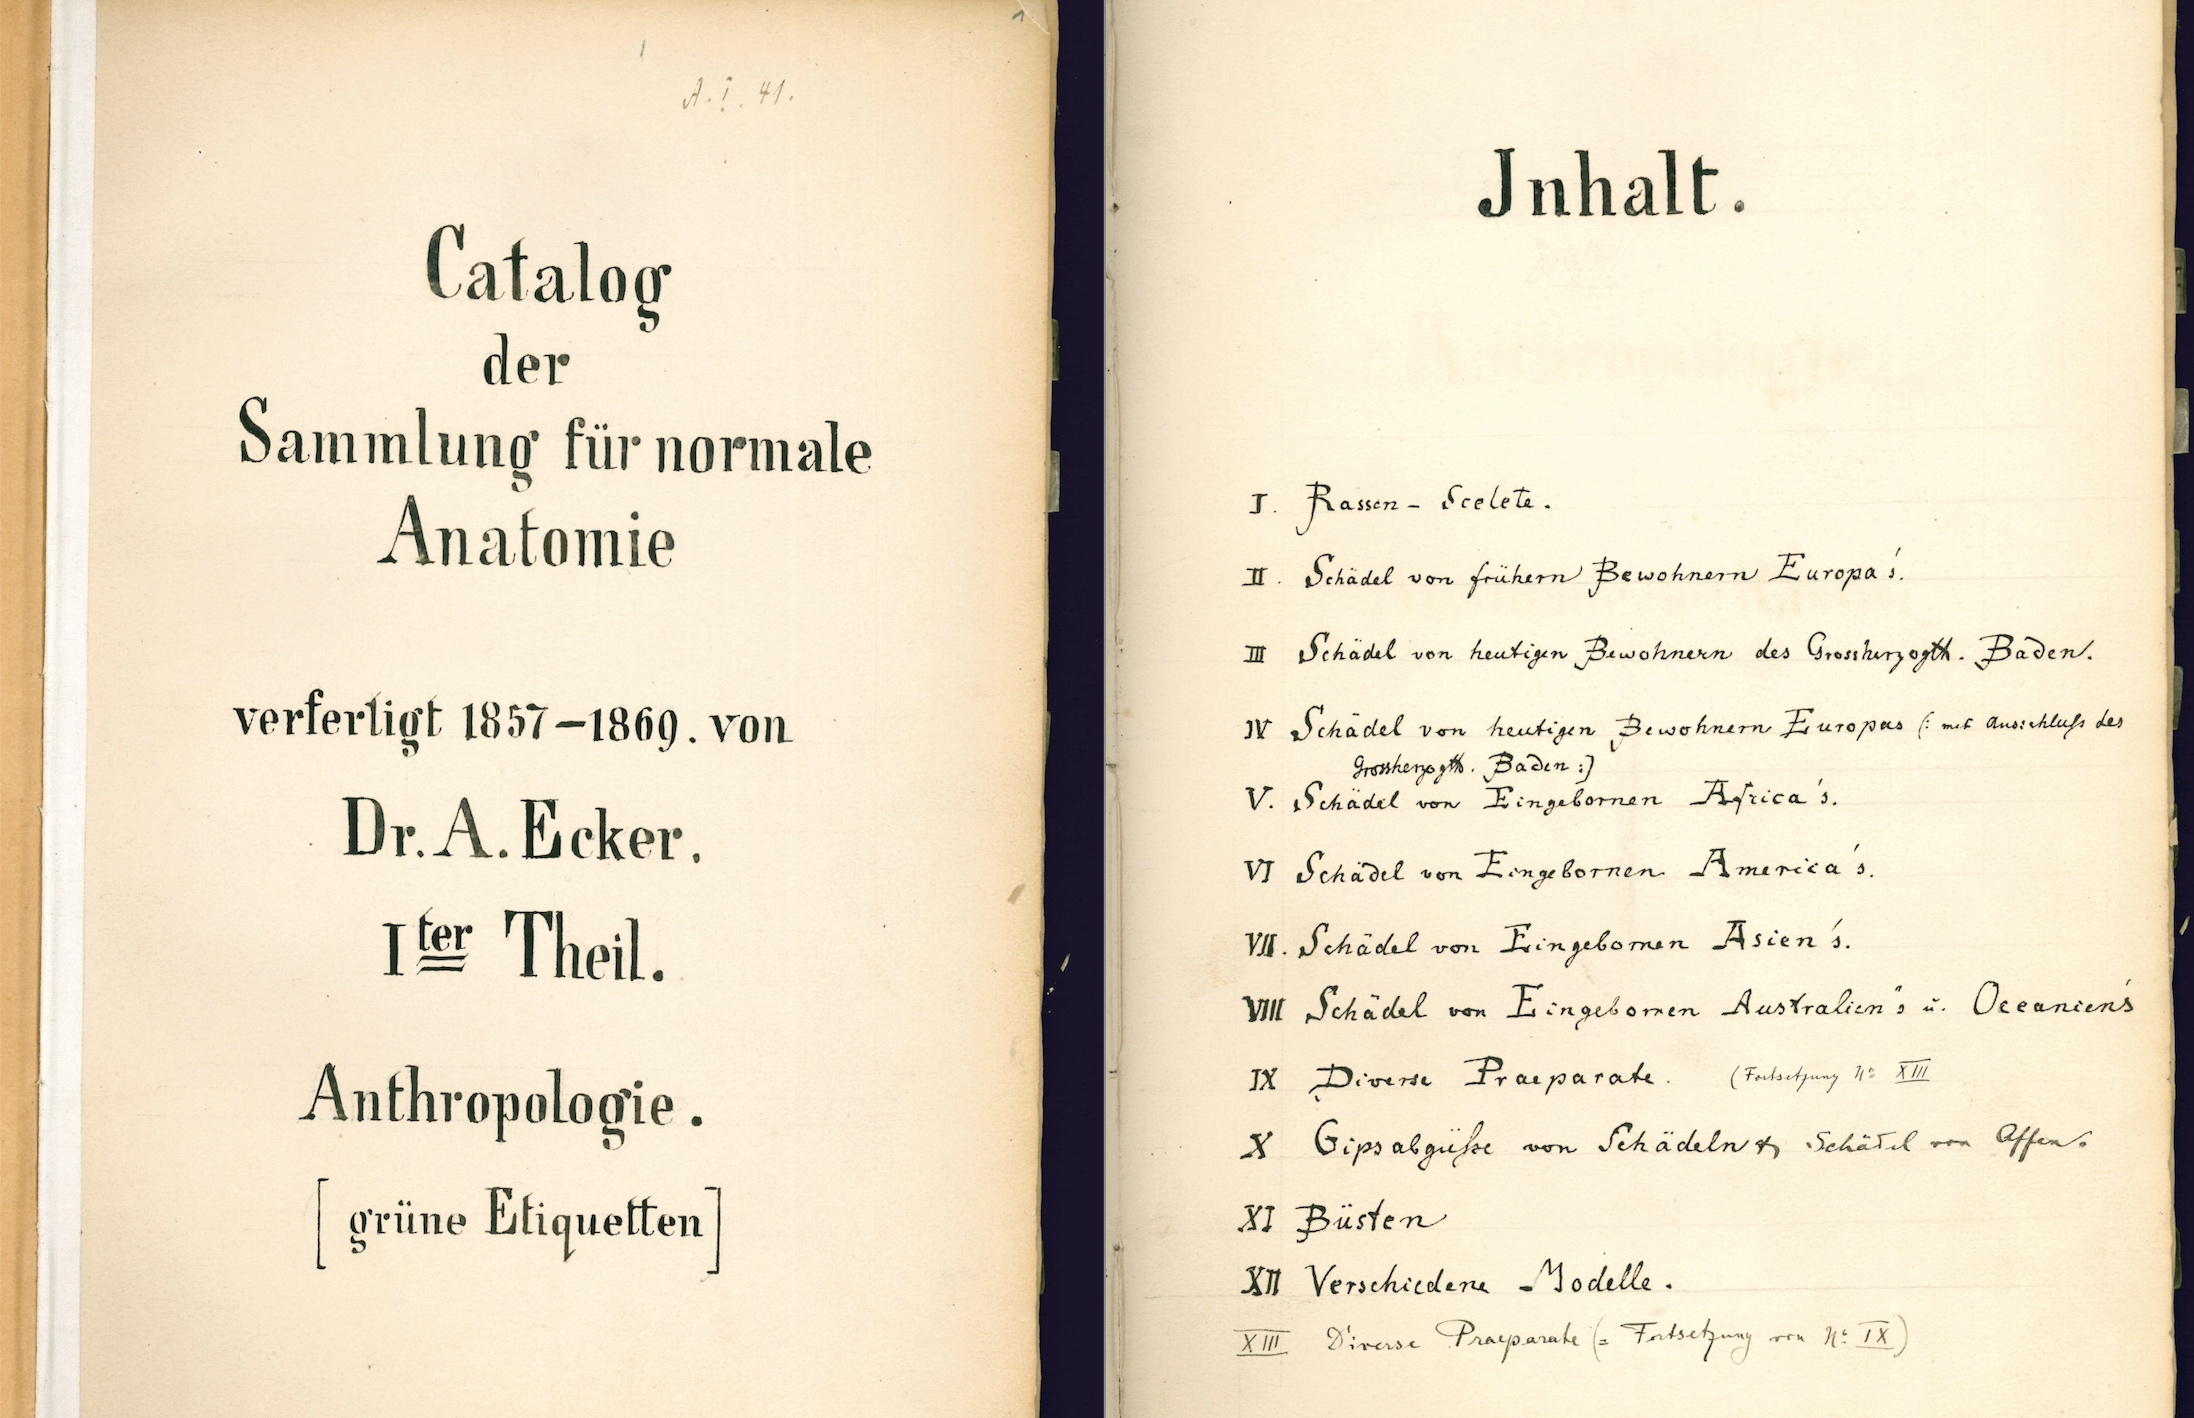 A. I. 41.
Catalog
der
Sammlung für normale
Anatomie
verfertigt 1857–1869. von
Dr. A. Ecker.
Iter Theil.
Anthropologie.
[grüne Etiquetten]
Jnhalt.
I. Rassen - Scelete.
II. Schädel von frühern Bewohnern Europa's.
III Schädel von heutigen Bewohnern des Grossherzogth. Baden.
IV Schädel von heutigen Bewohnern Europas (: mit Ausschluß des
Grossherzogth. Baden :)
V. Schädel von Eingebornen Africa's.
VI Schädel von Eingebornen America's.
VII. Schädel von Eingebornen Asien's.
VIII Schädel von Eingebornen Australien's u. Oceanien's
IX Diverse Praeparate. (Fortsetzung No XIII
X Gipsabgüße von Schädeln & Schädel von Affen.
XI Büsten
XII Verschiedene Modelle.
XIII Diverse Praeparate (= Fortsetzung von No IX)